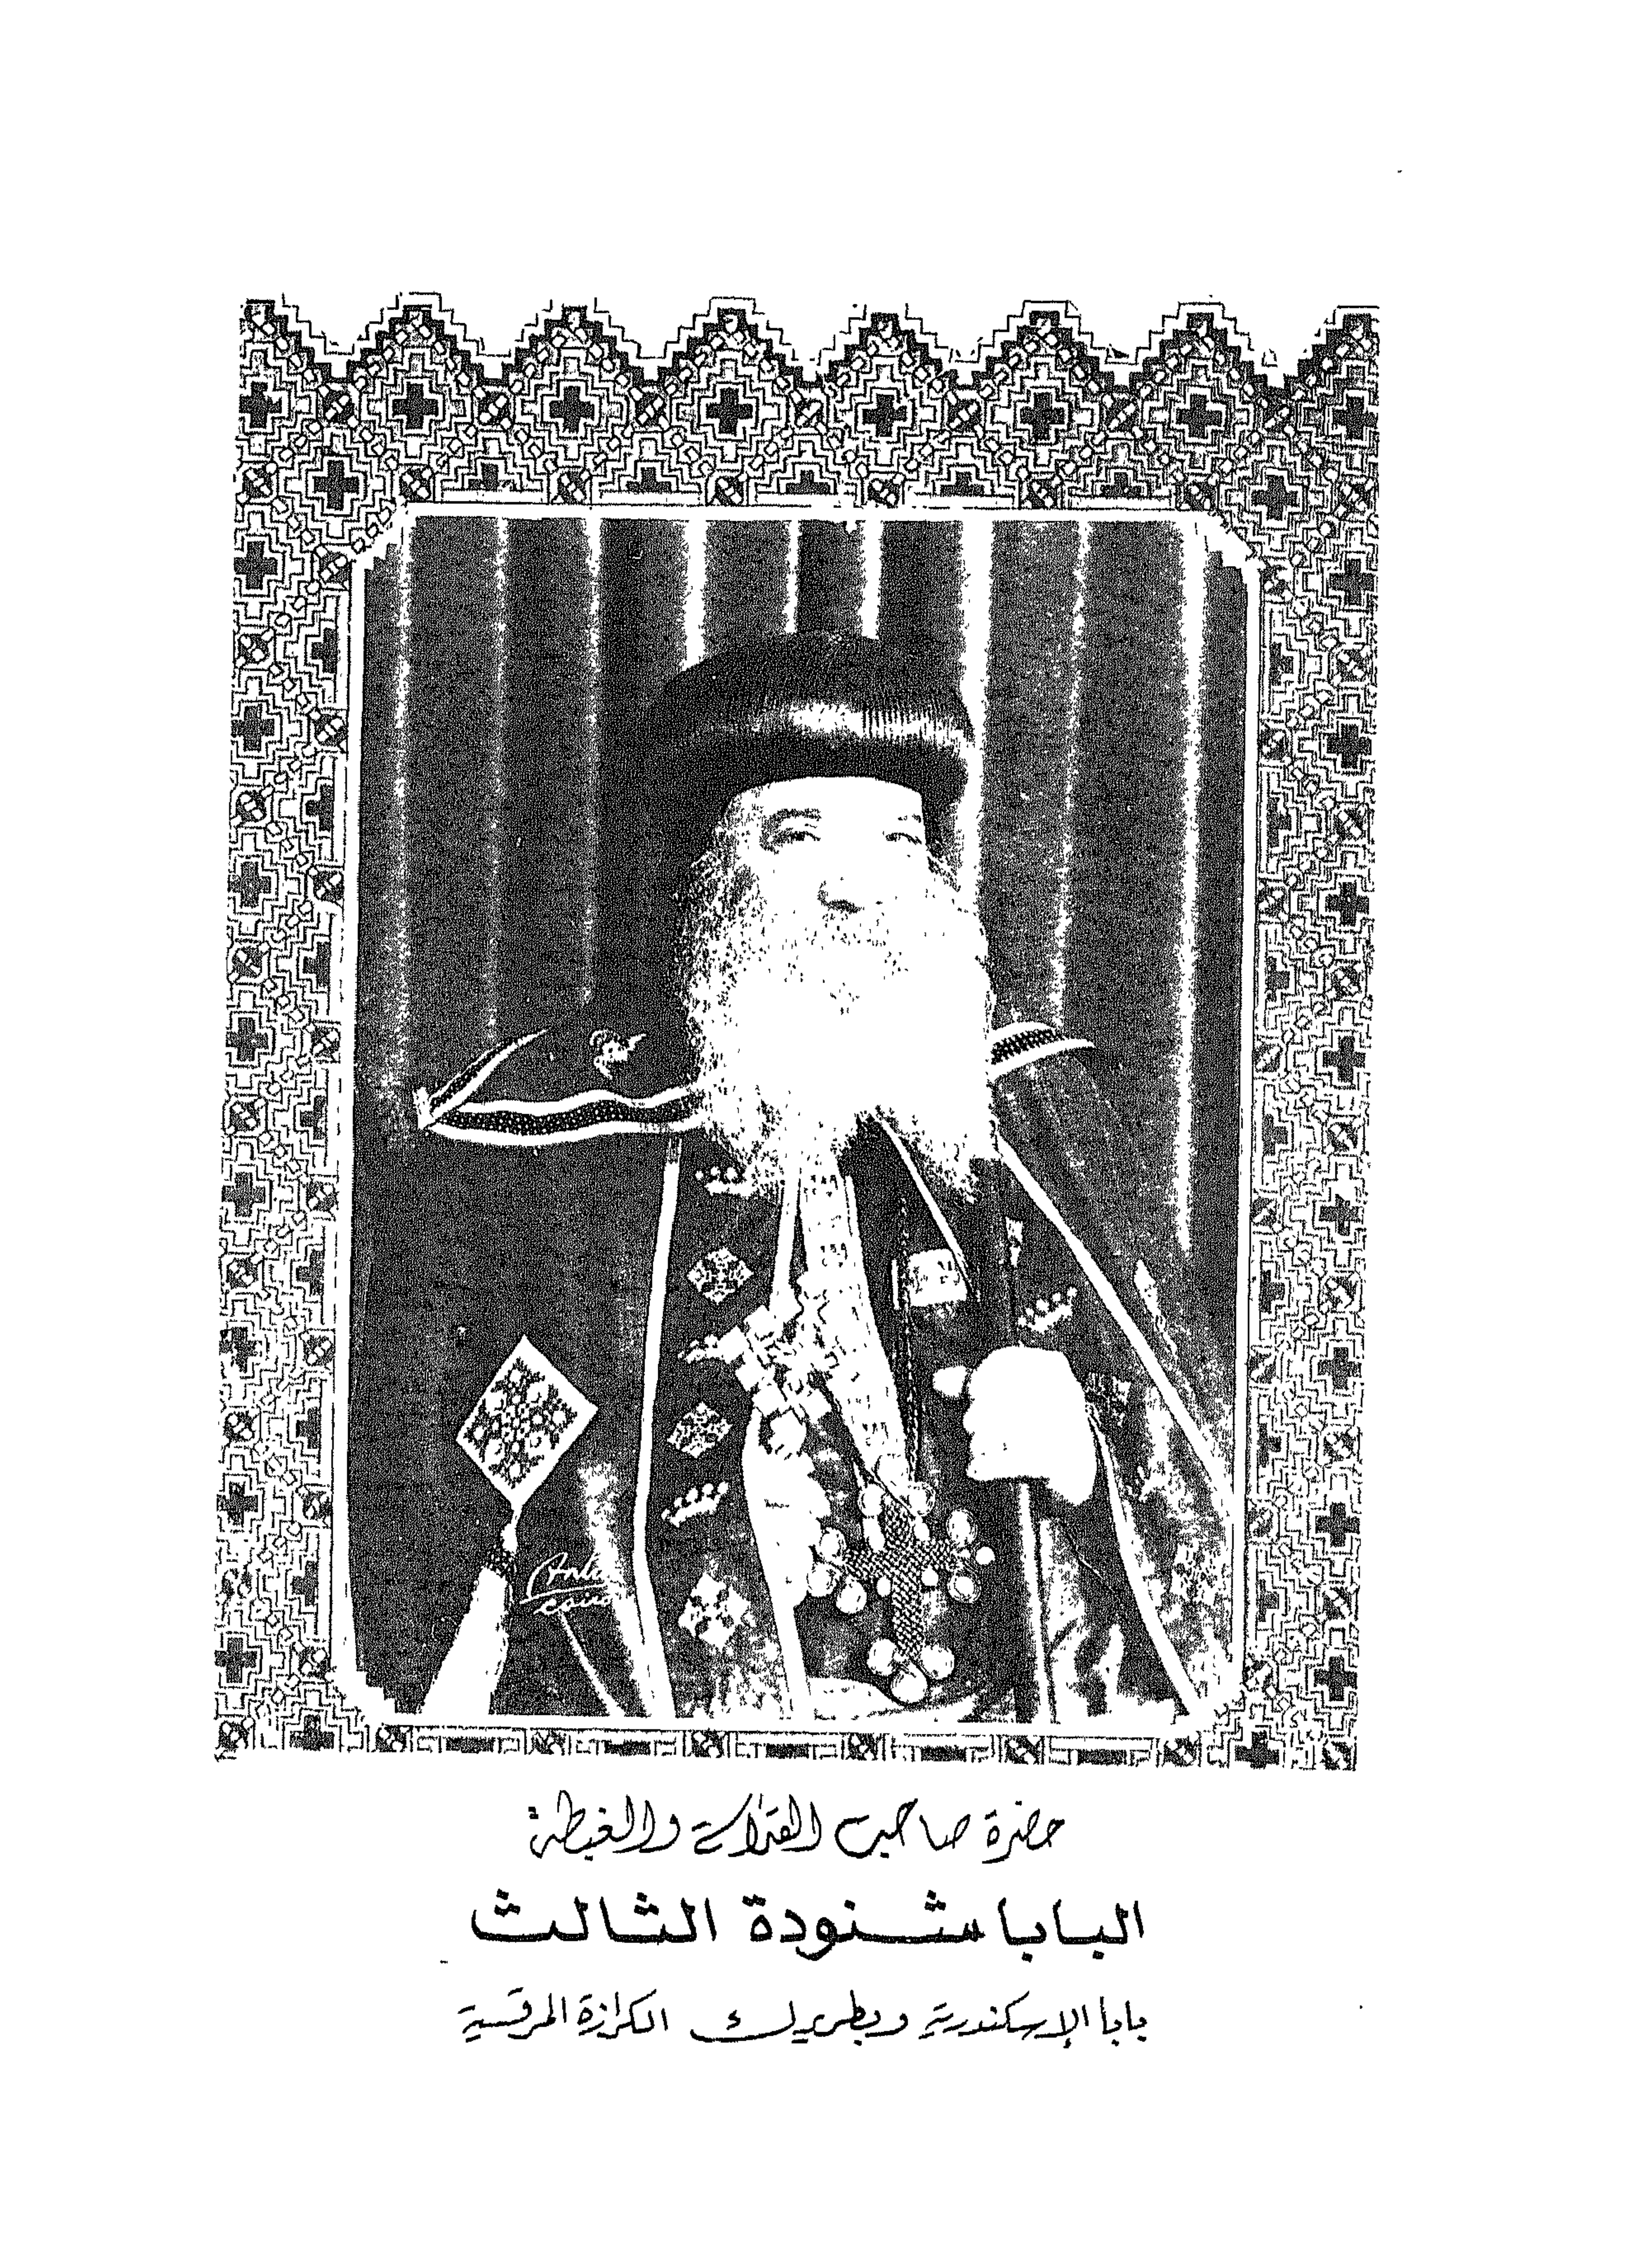 Anto
حضرة صاحب القداسة والغبطة
البابا شنودة الثالث
بابا الإسكندرية وبطريرك الكرازة المرقسية